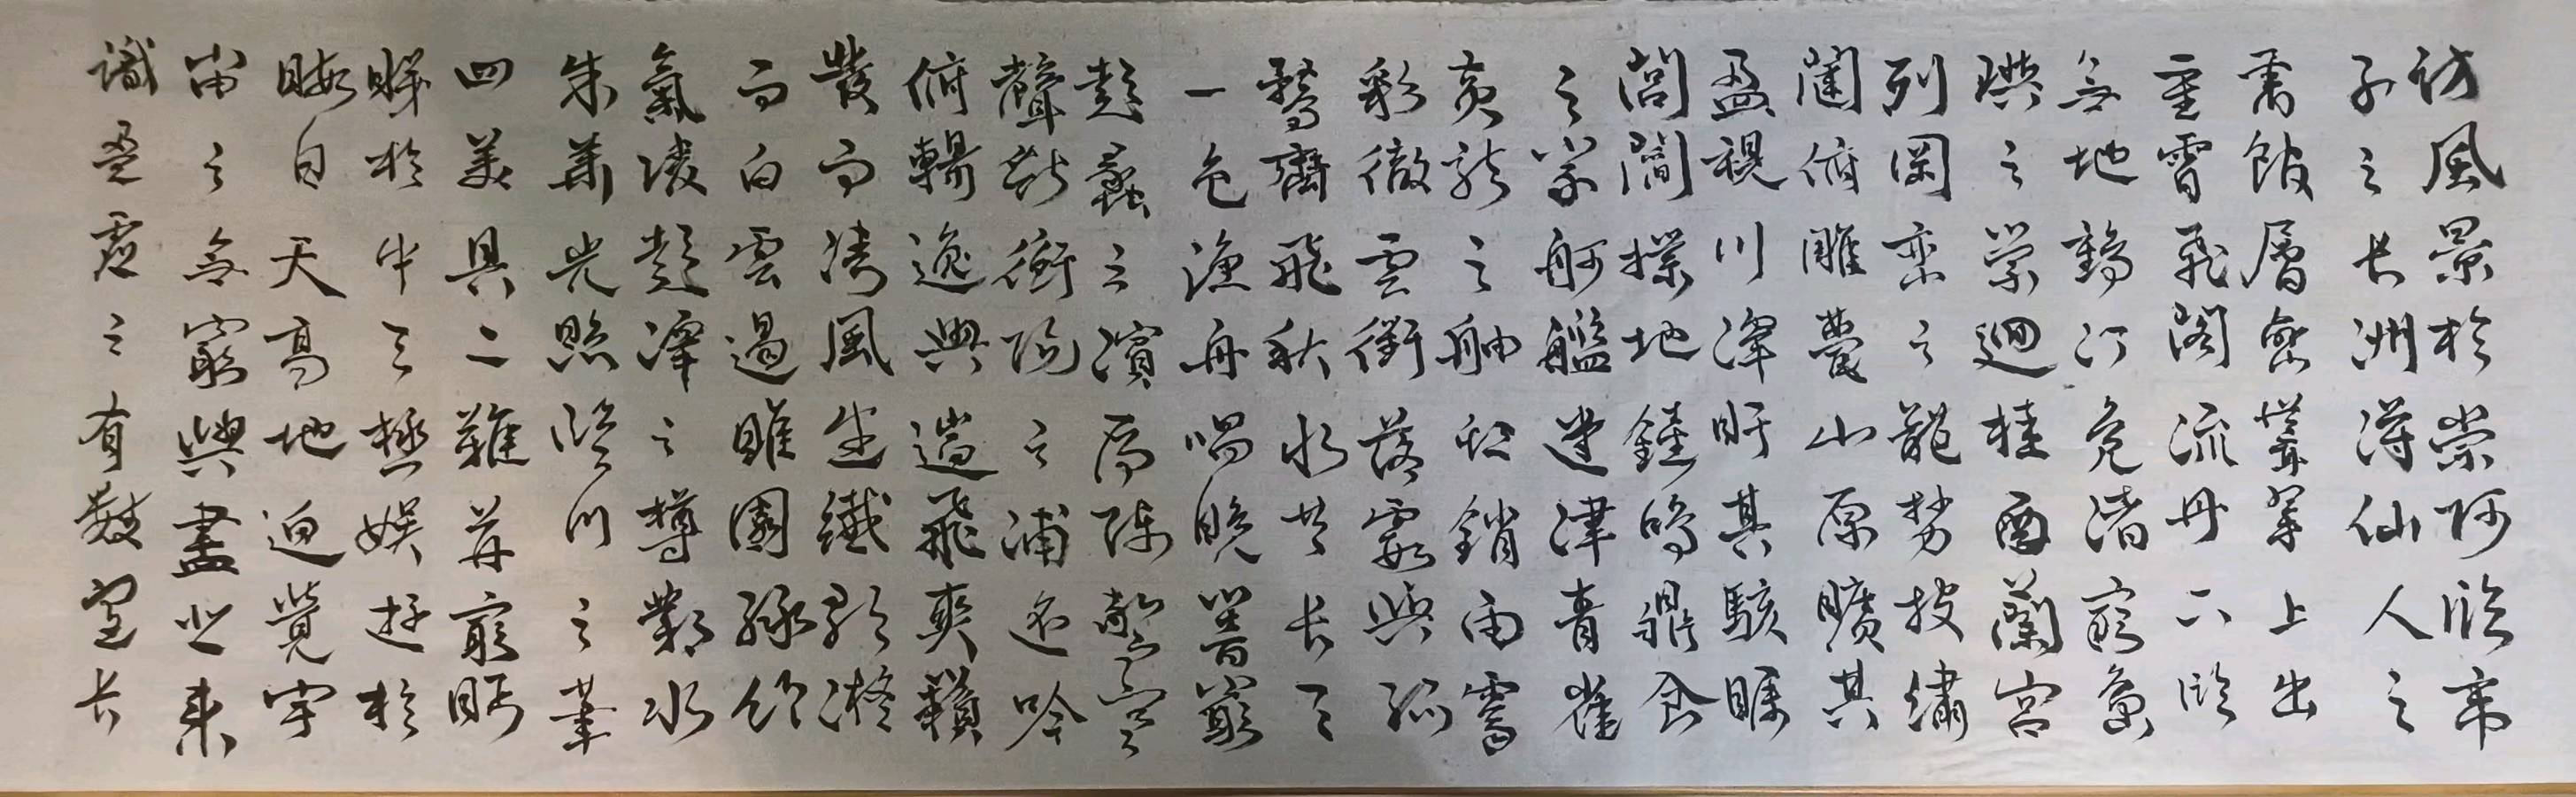 訪風景於崇阿臨帝
子之長洲得仙人之
舊館層巒聳翠上出
重霄飛閣流丹下臨
無地鶴汀鳧渚窮島
嶼之縈迴桂殿蘭宮
列岡巒之體勢披繡
闥俯雕甍山原曠其
盈視川澤盱其駭矚
閭閻撲地鐘鳴鼎食
之家舸艦迷津青雀
黃龍之舳虹銷雨霽
彩徹雲衢落霞與孤
鶩齊飛秋水共長天
一色漁舟唱晚響窮
彭蠡之濱雁陣驚寒
聲斷衡陽之浦遙吟
俯暢逸興遄飛爽籟
發而清風生纖歌凝
而白雲遏睢園綠竹
氣凌彭澤之樽鄴水
朱華光照臨川之筆
四美具二難並窮眄
睇於中天極娛遊於
暇日天高地迥覺宇
宙之無窮興盡悲來
識盈虛之有數望長